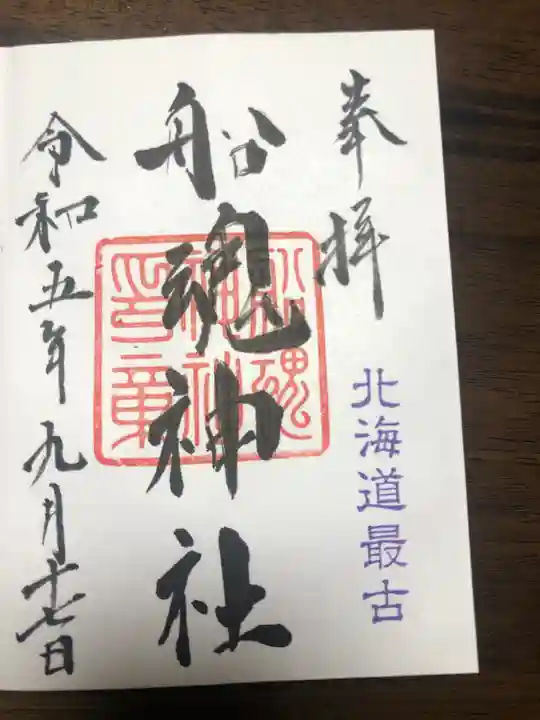 奉拝
北海道最古
船魂神社
船魂
神社
印章
令和五年九月十七日